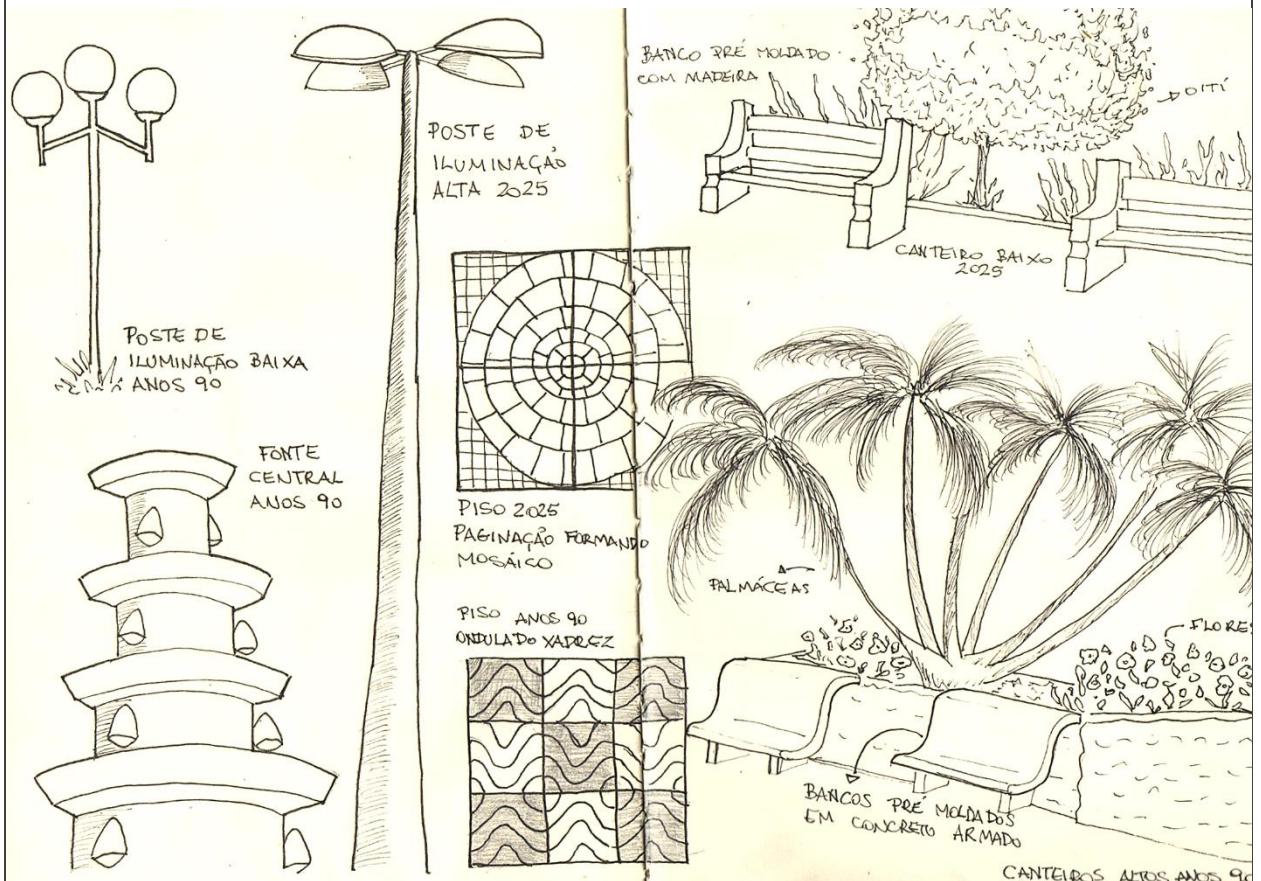 POSTE DE
ILUMINAÇÃO BAIXA
ANOS 90
FONTE
CENTRAL
ANOS 90
POSTE DE
ILUMINAÇÃO
ALTA 2025
PISO 2025
PAGINAÇÃO FORMANDO
MOSÁICO
PISO ANOS 90
ONDULADO XADREZ
BANCO PRÉ MOLDADO
COM MADEIRA
OITÍ
CANTEIRO BAIXO
2025
PALMÁCEAS
FLORES
BANCOS PRÉ MOLDADOS
EM CONCRETO ARMADO
CANTEIROS ALTOS ANOS 90